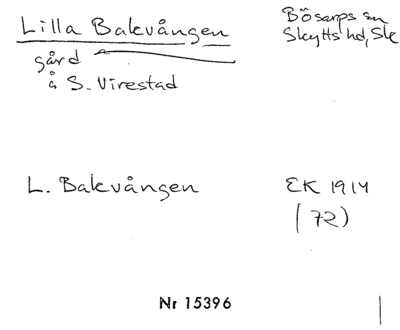 Lilla Bakvången
Bösarps sn
Skytts hd, Sk
gård
å S. Virestad
L. Bakvången
EK 1914
(72)
Nr 15396